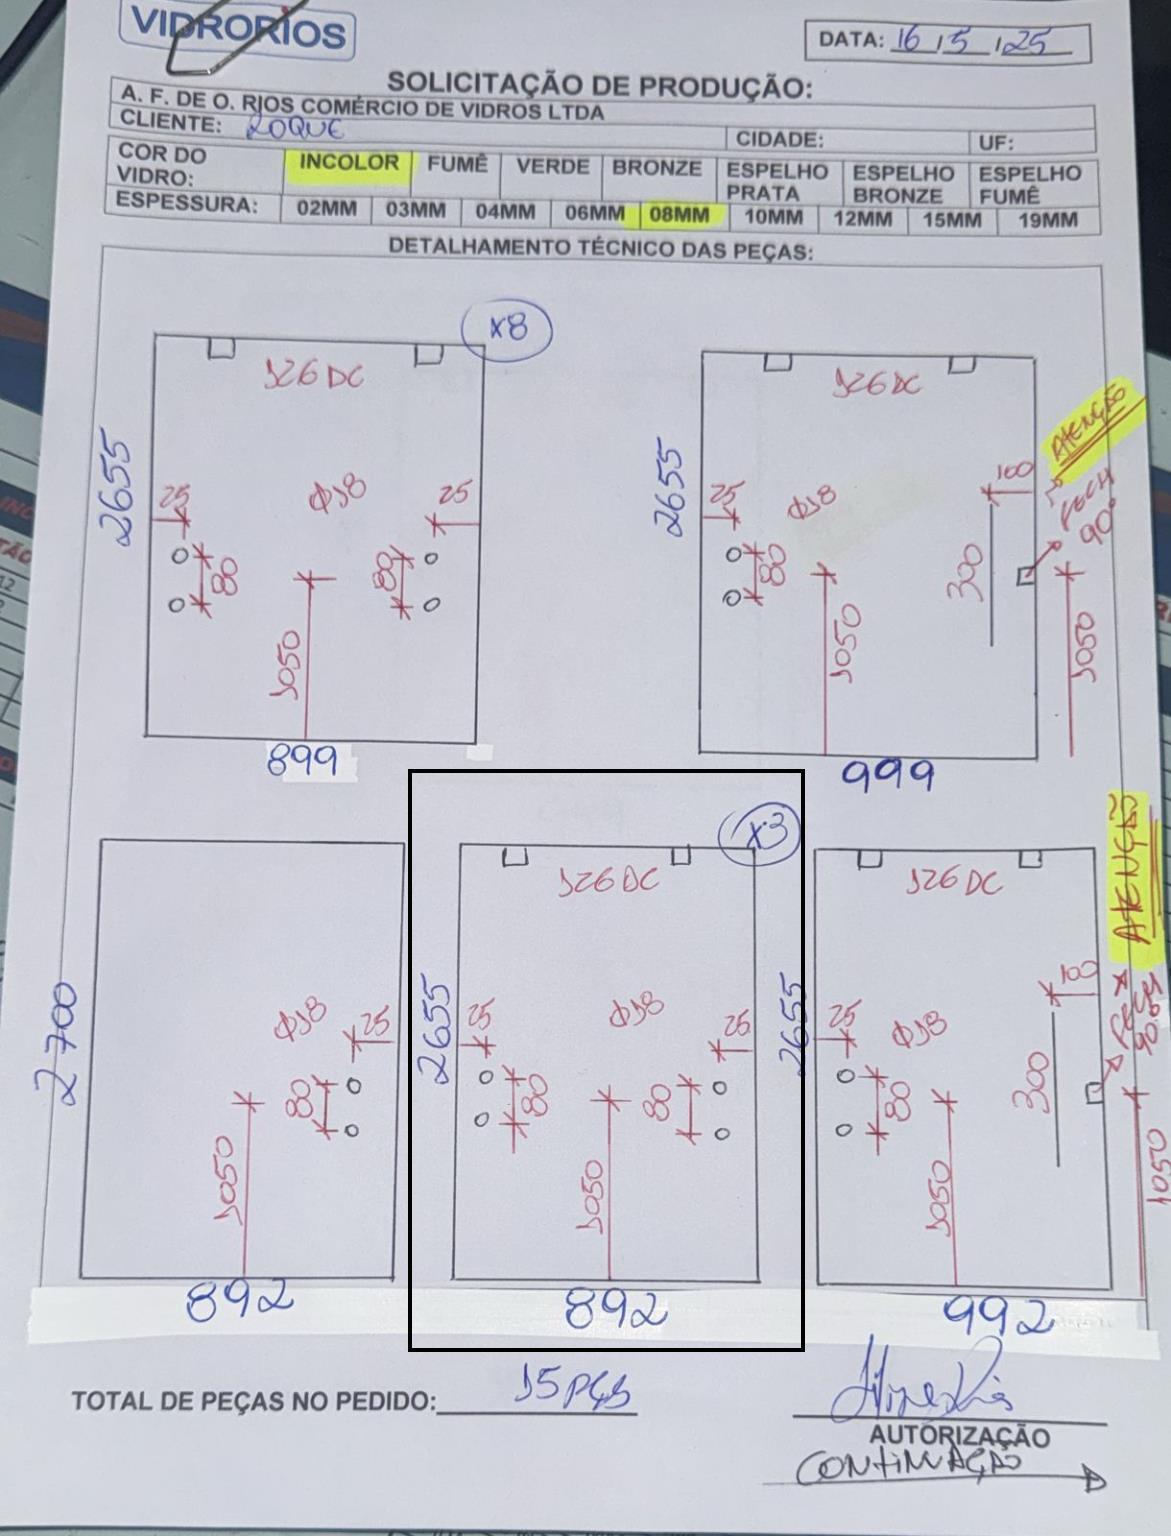 VIDRORIOS
DATA: 16/5/25
SOLICITAÇÃO DE PRODUÇÃO:
A. F. DE O. RIOS COMÉRCIO DE VIDROS LTDA
CLIENTE: ROQUE CIDADE: UF:
COR DO VIDRO: INCOLOR FUMÊ VERDE BRONZE ESPELHO PRATA ESPELHO BRONZE ESPELHO FUMÊ
ESPESSURA: 02MM 03MM 04MM 06MM 08MM 10MM 12MM 15MM 19MM
DETALHAMENTO TÉCNICO DAS PEÇAS:
x8
126 DC
2655
25 Φ18 25
80 80
1050
899
126 DC
ATENÇÃO
2655
25 Φ18 100
FECH 90°
80 300
1050 1050
999
2700
Φ18 25
80
1050
892
x3
126 DC
2655
25 Φ18 25
80 80
1050
892
126 DC
ATENÇÃO
2655
25 Φ18 100
FECH 90°
80 300
1050 1050
992
TOTAL DE PEÇAS NO PEDIDO: 15 PÇS
AUTORIZAÇÃO
CONTINUAÇÃO